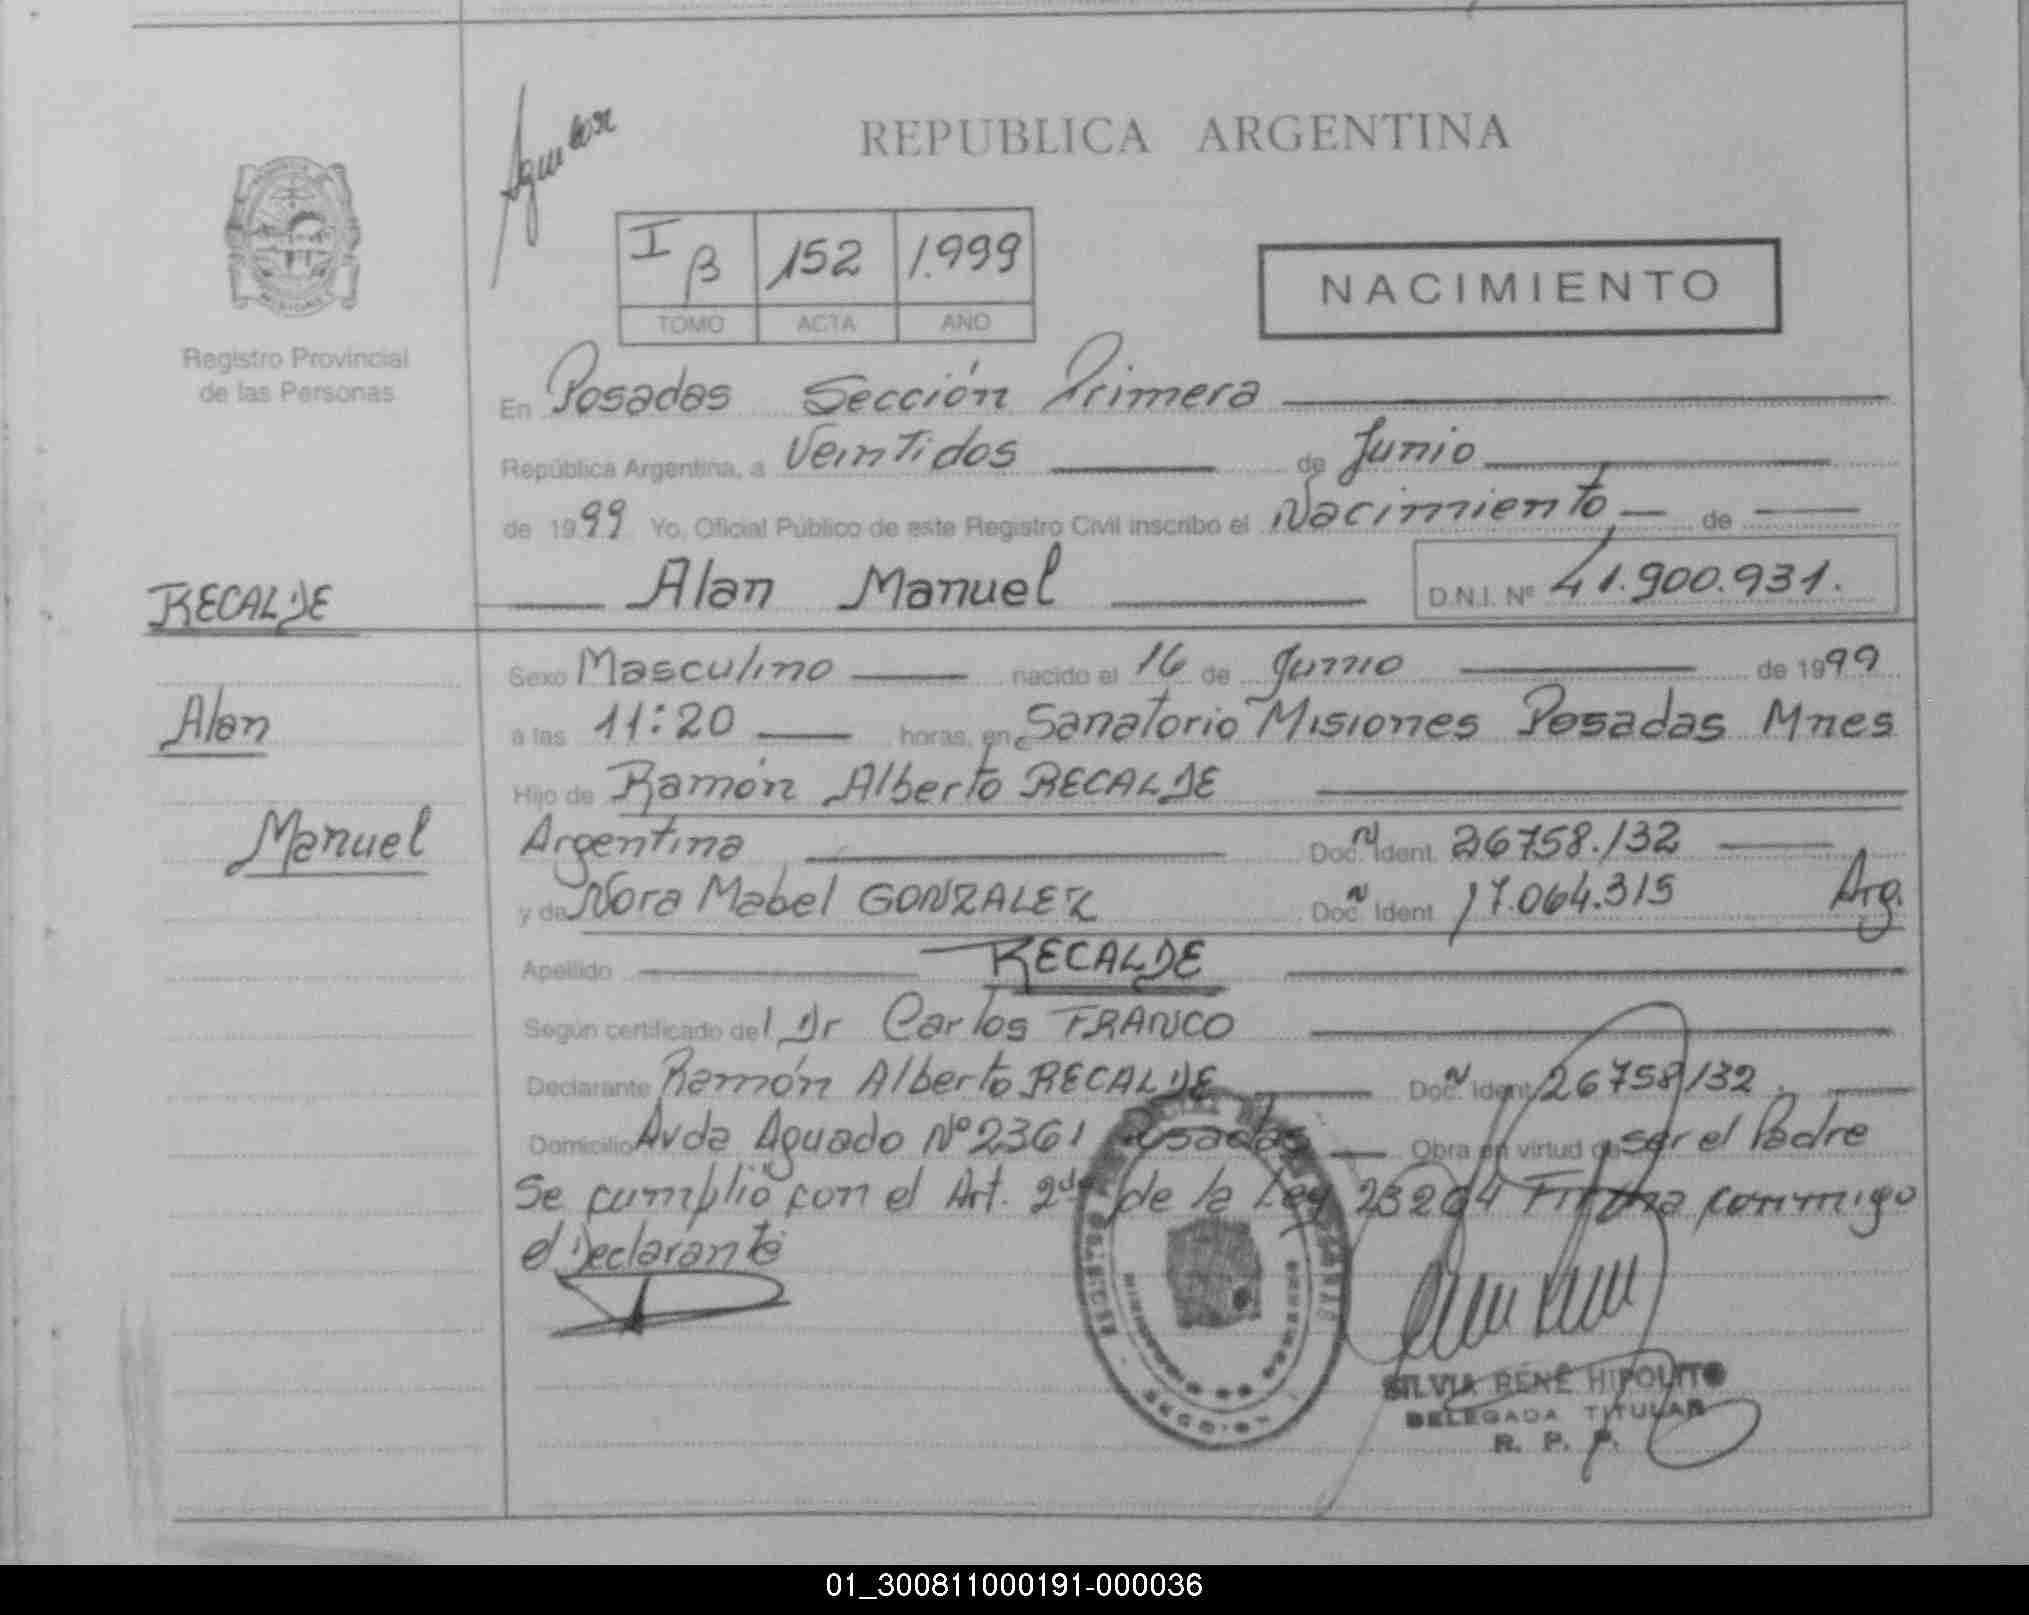 REPUBLICA ARGENTINA
I B 152 1.999
TOMO ACTA AÑO
NACIMIENTO
Registro Provincial
de las Personas
En Posadas Sección Primera
República Argentina, a Veintidos de Junio
de 1999 Yo, Oficial Público de este Registro Civil inscribo el Nacimiento, de
RECALDE
Alan Manuel D.N.I. Nº 41.900.931.
Sexo Masculino nacido el 16 de Junio de 1999
Alan
a las 11:20 horas, en Sanatorio Misiones Posadas Mnes
Hijo de Ramón Alberto RECALDE
Manuel
Argentina Doc. Ident. 26758.132
y de Nora Mabel GONZALEZ Doc. Ident. 17.064.315 Arg.
Apellido RECALDE
Según certificado del Dr Carlos FRANCO
Declarante Ramón Alberto RECALDE Doc. Ident. 26758132
Domicilio Avda Aguado Nº 2361 Posadas Obra en virtud de ser el Padre
Se cumplio con el Art. 2do de la Ley 23264 Firma conmigo
el Declarante
SILVIA RENÉ HIPOLITO
DELEGADA TITULAR
R. P. P.
01_300811000191-000036